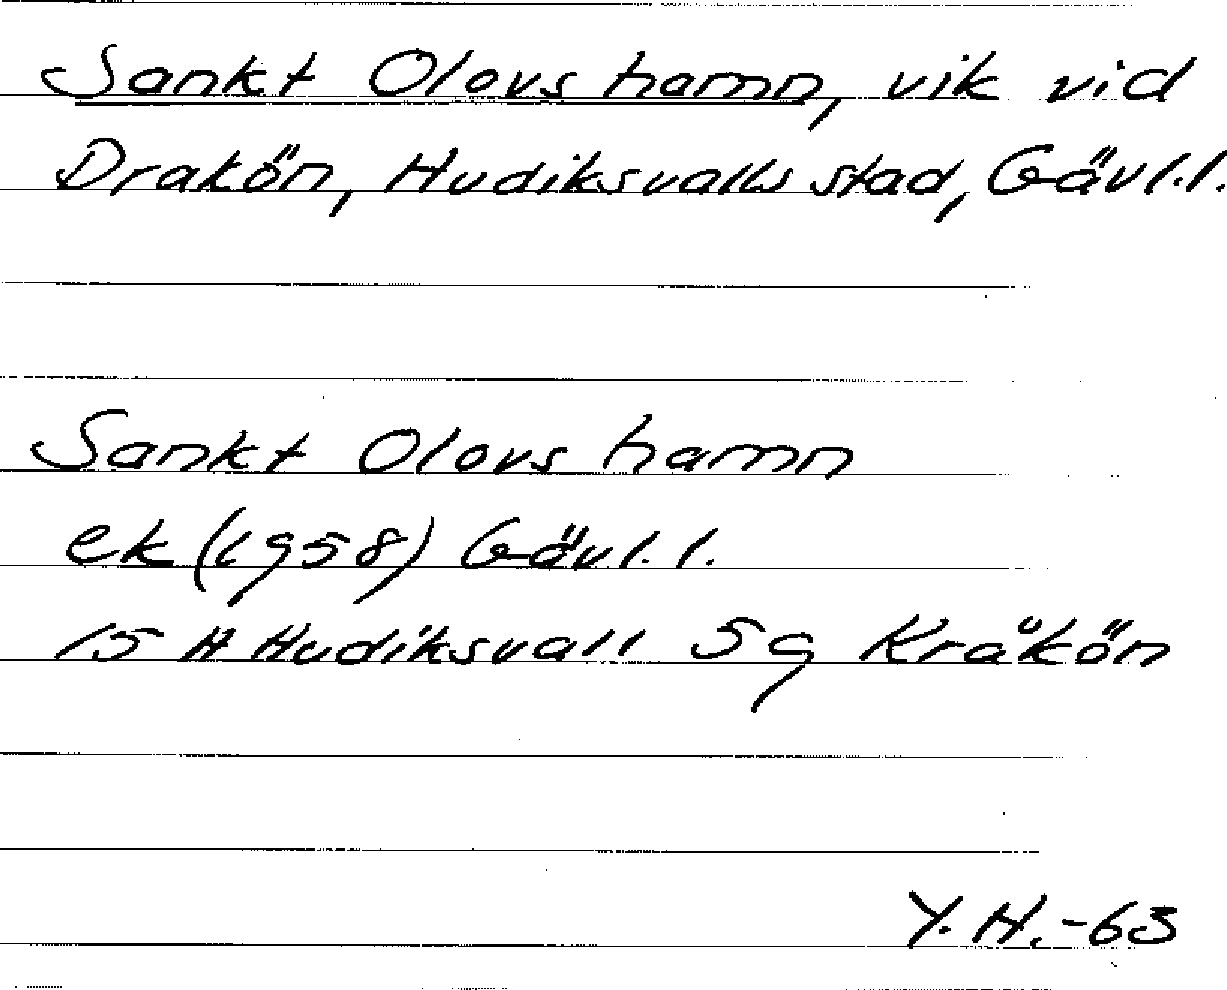 Sankt Olovs hamn, vik vid
Drakön, Hudiksvalls stad, Gävl.l.
Sankt Olovs hamn
ek (1958) Gävl.l.
15 H Hudiksvall 5g Kråkön
Y.H.-63